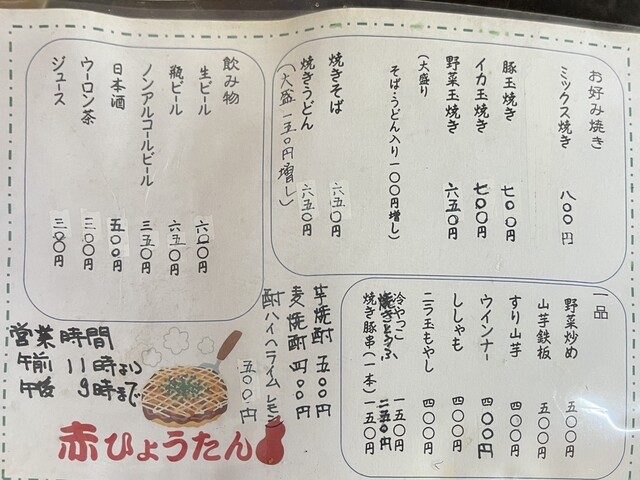 お好み焼き
ミックス焼き 八〇〇円
豚玉焼き 七〇〇円
イカ玉焼き 七〇〇円
野菜玉焼き 六五〇円
(大盛り
そば・うどん入り一〇〇円増し)
焼きそば 六五〇円
焼きうどん 六五〇円
(大盛一五〇円増し)
飲み物
生ビール 六〇〇円
瓶ビール 六五〇円
ノンアルコールビール 三五〇円
日本酒 五〇〇円
ウーロン茶 三〇〇円
ジュース 三〇〇円
一品
野菜炒め 五〇〇円
山芋鉄板 五〇〇円
すり山芋 四〇〇円
ウインナー 四〇〇円
ししゃも 四〇〇円
ニラ玉もやし 四〇〇円
冷やっこ 一五〇円
焼きとうふ 二五〇円
焼き豚串(一本) 一五〇円
芋焼酎 五〇〇円
麦焼酎 四〇〇円
酎ハイ(ライムレモン) 五〇〇円
営業時間
午前 11時より
午後 9時まで
赤ひょうたん